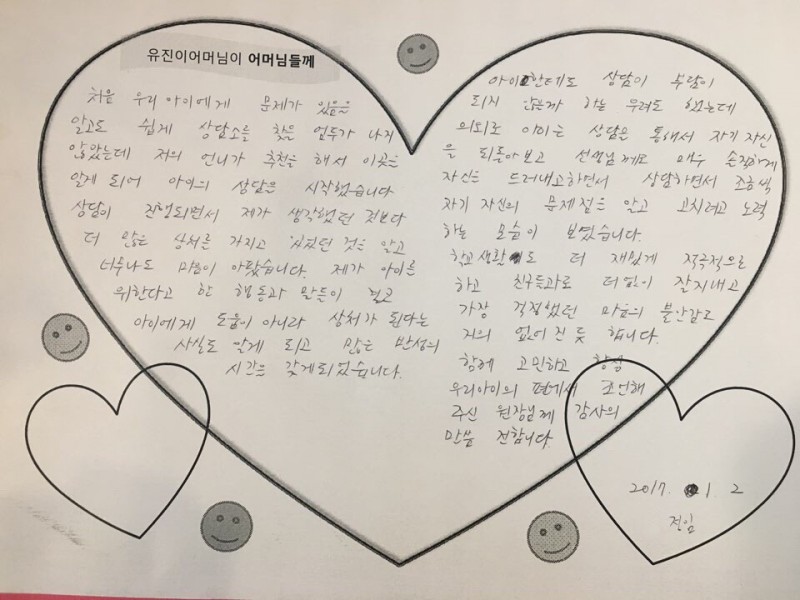 유진이어머님이 어머님들께
처음 우리 아이에게 문제가 있음을
알고도 쉽게 상담소를 찾을 엄두가 나지
않았는데 저의 언니가 추천을 해서 이곳을
알게 되어 아이의 상담을 시작했습니다
상담이 진행되면서 제가 생각했던 것보다
더 많은 상처를 가지고 있었던 것을 알고
너무나도 마음이 아팠습니다. 제가 아이를
위한다고 한 행동과 말들이 결코
아이에게 도움이 아니라 상처가 된다는
사실도 알게 되고 많은 반성의
시간을 갖게되었습니다.
아이한테도 상담이 부담이
되지 않을까 하는 우려도 했는데
의외로 아이는 상담을 통해서 자기 자신
을 되돌아보고 선생님께도 매우 솔직하게
자신을 드러내고하면서 상담하면서 조금씩
자기 자신의 문제점을 알고 고치려고 노력
하는 모습이 보였습니다.
학교생활도 더 재밌게 적극적으로
하고 친구들과도 더없이 잘지내고
가장 걱정했던 마음의 불안감도
거의 없어진 듯 합니다.
함께 고민하고 항상
우리아이의 편에서 조언해
주신 원장님께 감사의
말씀 전합니다.
2017. 1. 2